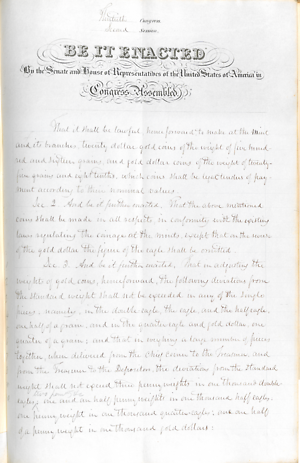 Congress
Second Session
BE IT ENACTED
By the Senate and House of Representatives of the United States of America in
Congress Assembled
That it shall be lawful henceforward to make at the Mint
and its branches twenty dollar gold coins of the weight of five hund
red and sixteen grains, and gold dollar coins of the weight of twenty
five grains and eight tenths, which coins shall be legal tenders of pay
ment according to their nominal values.
Sec 2. And be it further enacted. That the above mentioned
coins shall be made in all respects in conformity with the existing
laws regulating the coinage at the mints, except that on the reverse
of the gold dollar the figure of the eagle shall be omitted
Sec. 3. And be it further enacted. That in adjusting the
weights of gold coins, henceforward, the following deviations from
the standard weight shall not be exceeded in any of the single
pieces; namely; in the double eagle, the eagle, and the half eagle,
one half of a grain; and in the quarter eagle and gold dollar, one
quarter of a grain; and that in weighing a large number of pieces
together, when delivered from the Chief Coiner to the Treasurer, and
from the Treasurer to the Depositor, the deviation from the standard
weight shall not exceed three pennyweights in one thousand double
eagles; one and an half pennyweights in one thousand half eagles;
one pennyweight in one thousand quarter eagles; and one half
of a pennyweight in one thousand gold dollars: